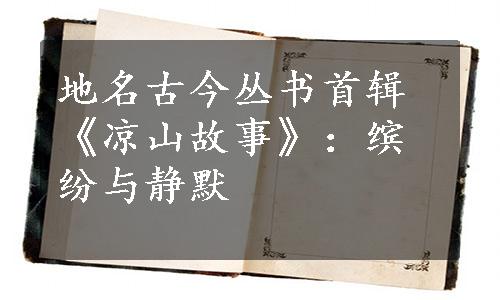 地名古今丛书首辑
《凉山故事》：缤
纷与静默